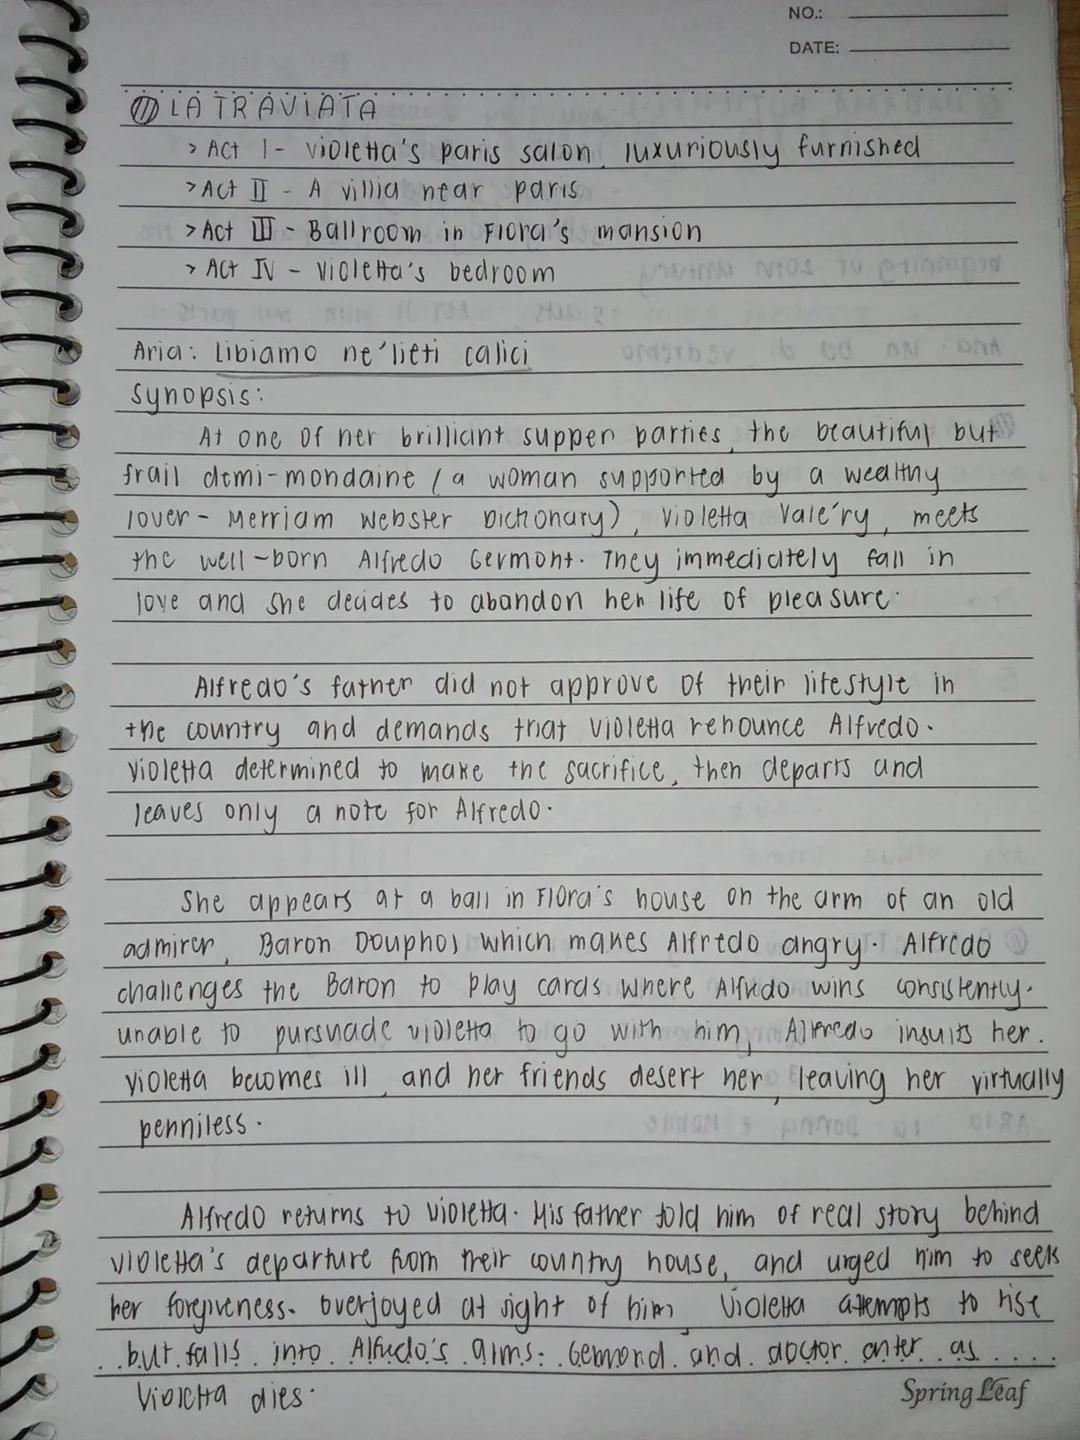 NO.:
DATE:
LA TRAVIATA
> Act I - Violetta's paris salon, luxuriously furnished
> Act II - A villia near paris
> Act III - Ballroom in Flora's mansion
> Act IV - Violetta's bedroom
Aria: Libiamo ne'lieti calici
Synopsis:
At one of her brilliant supper parties, the beautiful but
frail demi-mondaine (a woman supported by a wealthy
lover - Merriam Webster Dictionary), Violetta Vale'ry, meets
the well-born Alfredo Germont. They immediately fall in
love and she decides to abandon her life of pleasure.
Alfredo's father did not approve of their lifestyle in
the country and demands that Violetta renounce Alfredo.
Violetta determined to make the sacrifice, then departs and
leaves only a note for Alfredo.
She appears at a ball in Flora's house on the arm of an old
admirer, Baron Douphol which makes Alfredo angry. Alfredo
challenges the Baron to play cards where Alfredo wins consistently.
unable to pursuade violetta to go with him, Alfredo insults her.
Violetta becomes ill, and her friends desert her, leaving her virtually
penniless.
Alfredo returns to Violetta. His father told him of real story behind
Violetta's departure from their country house, and urged him to seek
her forgiveness. Overjoyed at sight of him, Violetta attempts to rise
but falls into Alfredo's arms. Gemond and doctor enter as
Violetta dies.
Spring Leaf